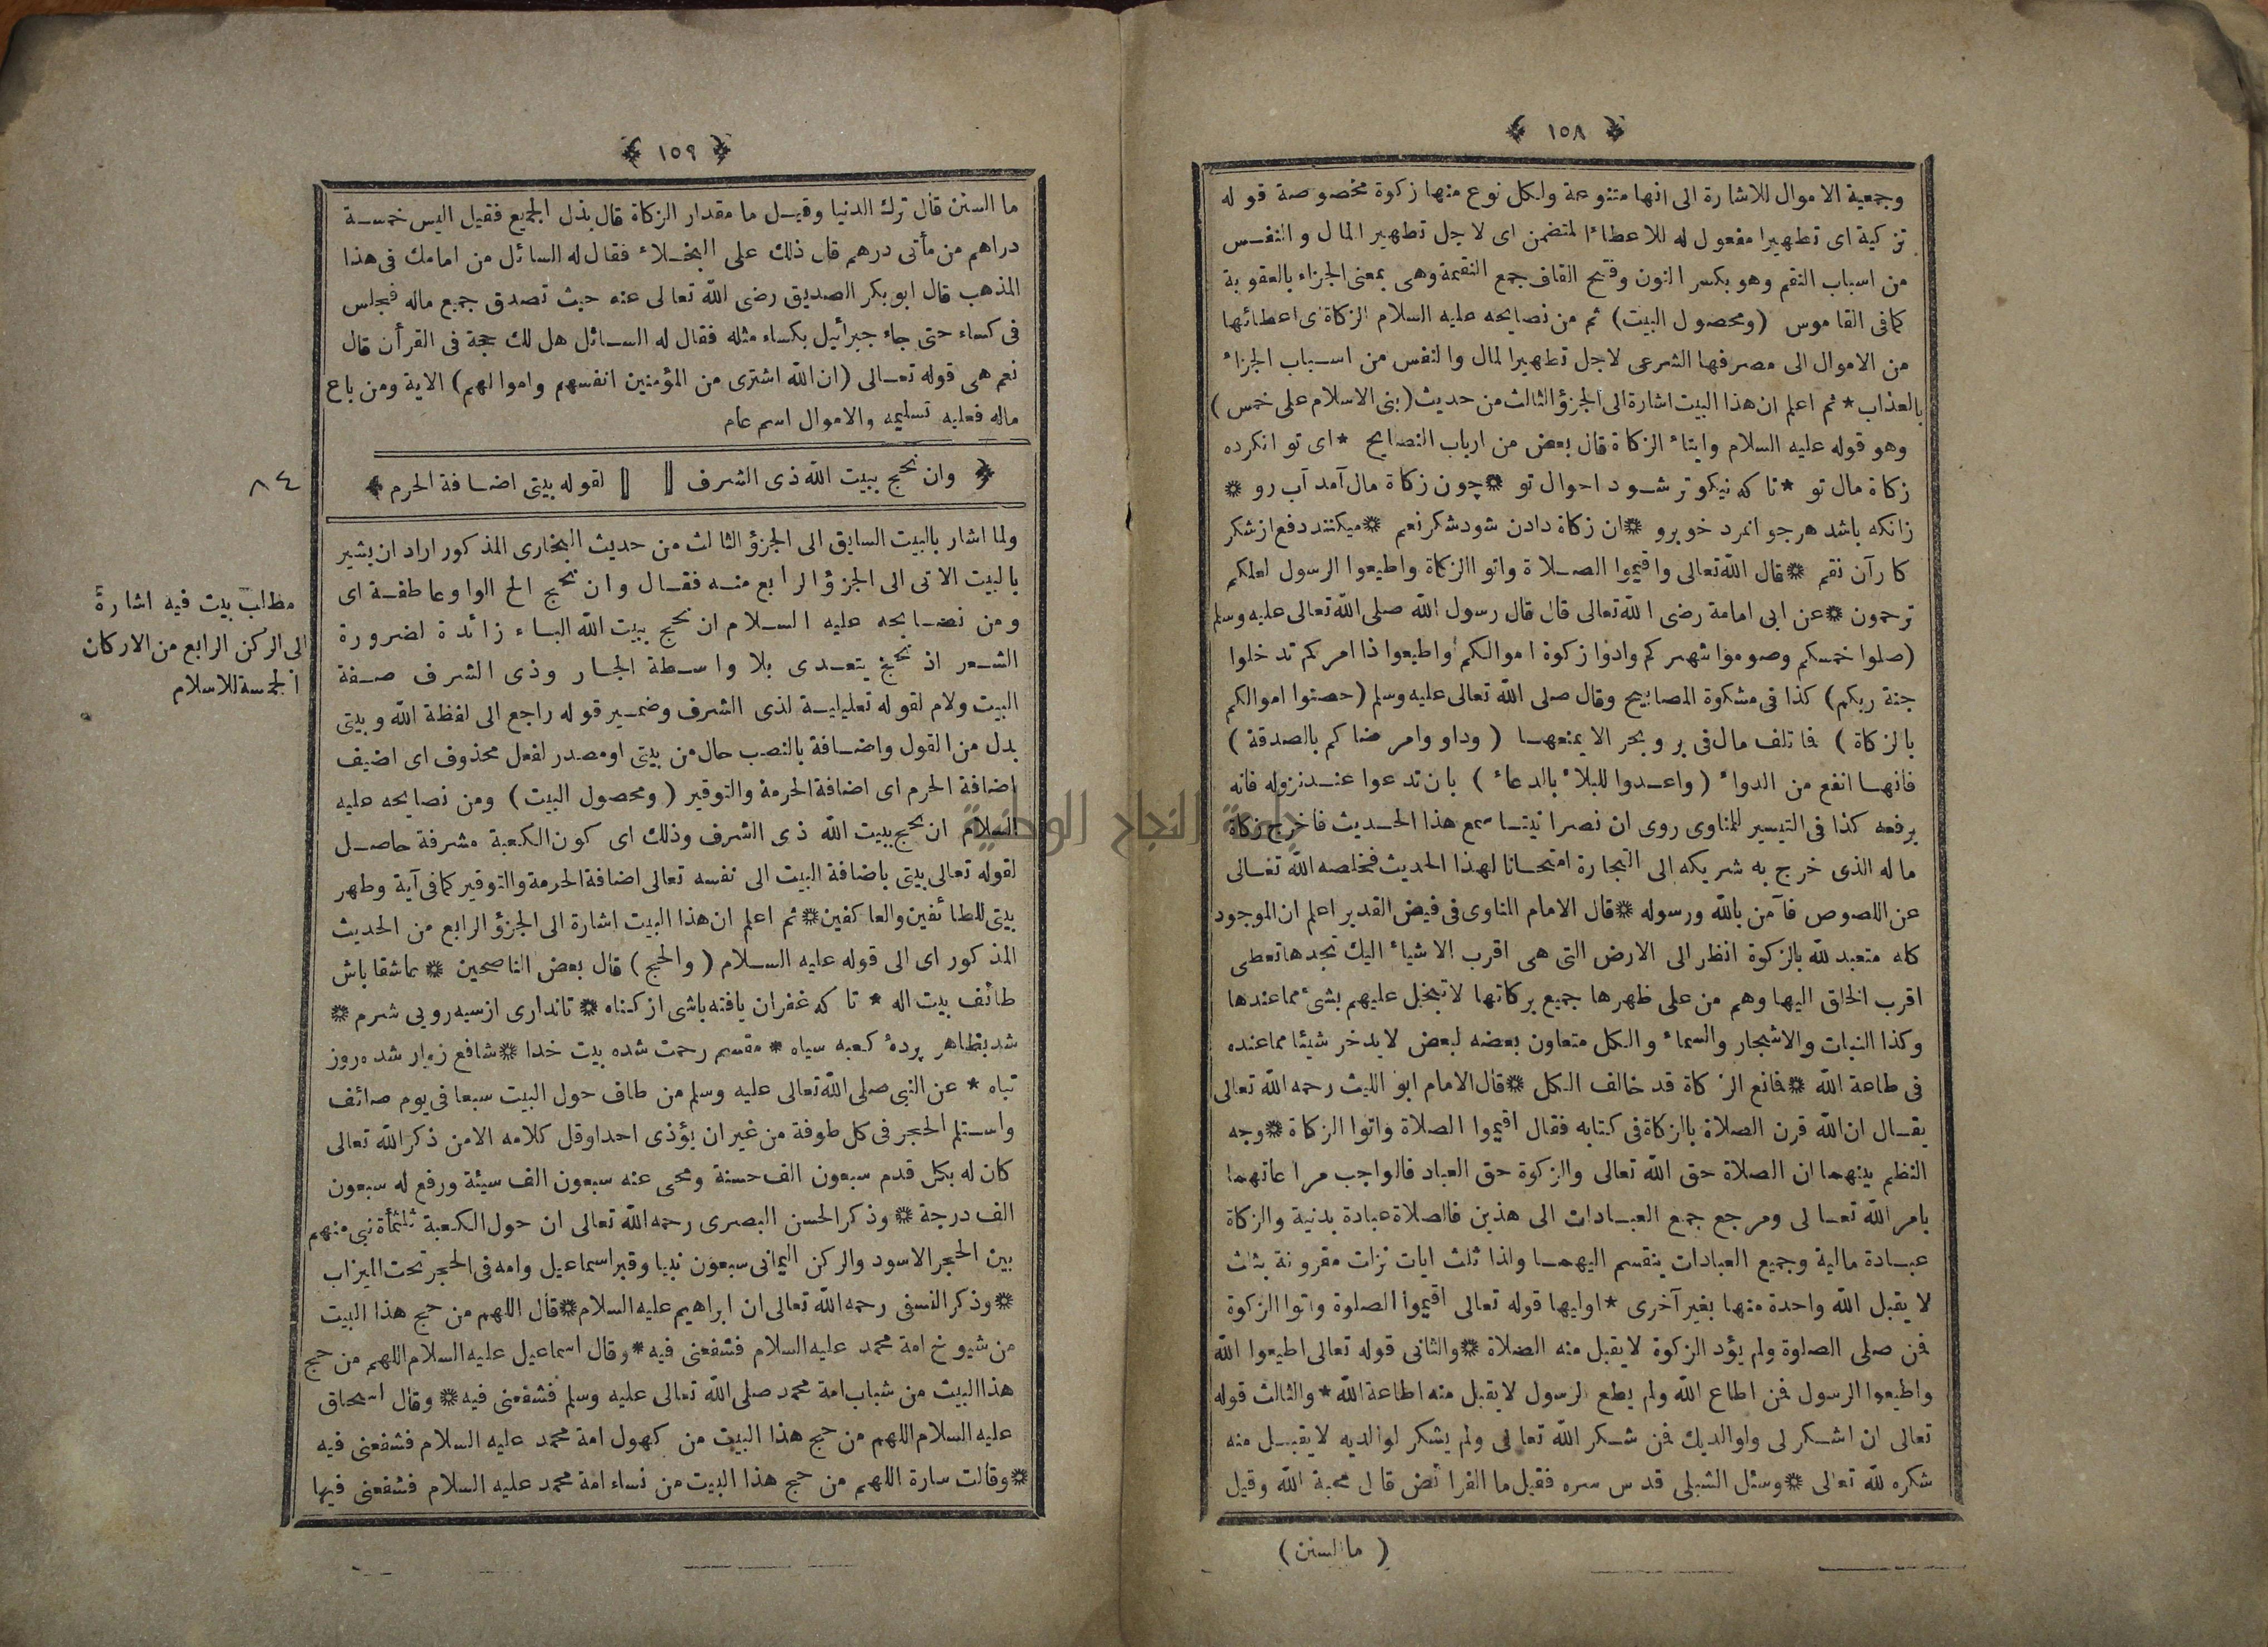 ﴿ ١٥٨ ﴾
وجمعية الاموال للاشارة الى انها متنوعة ولكل نوع منها زكوة مخصوصة قوله
تزكية اى تطهيرا مفعول له للاعطاءا لمتضمن اى لاجل تطهير المال والنفس
من اسباب النقم وهو بكسر النون وفتح القاف جمع النقمة وهى بمعنى الجزاء بالعقوبة
كما فى القاموس (ومحصول البيت) ثم من نصايحه عليه السلام الزكاة اى اعطائها
من الاموال الى مصرفها الشرعى لاجل تطهيرا لمال والنفس من اسباب الجزاء
بالعذاب * ثم اعلم ان هذا البيت اشارة الى الجزؤ الثالث من حديث (بنى الاسلام على خمس)
وهو قوله عليه السلام وايتاء الزكاة قال بعض من ارباب النصايح * اى توانكرده
زكاة مال تو * تا كه نيكوتر شود احوال تو * چون زكاة مال آمد آب رو *
زانكه باشد هر جوانمرد خوبرو * ان زكاة دادن شود شكر نعم * ميكنند دفع از شكر
كارآن نقم * قال الله تعالى واقيموا الصلاة واتوا الزكاة واطيعوا الرسول لعلكم
ترحمون * عن ابى امامة رضى الله تعالى قال قال رسول الله صلى الله تعالى عليه وسلم
(صلوا خمسكم وصوموا شهركم وادوا زكوة اموالكم واطيعوا ذا امركم تدخلوا
جنة ربكم) كذا فى مشكوة المصابيح وقال صلى الله تعالى عليه وسلم (حصنوا اموالكم
بالزكاة) فما تلف مال فى بر وبحر الا بمنعها (وداووا مرضاكم بالصدقة)
فانها انفع من الدواء (واعدوا للبلاء بالدعاء) بان تدعوا عند نزوله فانه
يرفعه كذا فى التيسير للمناوى روى ان نصرانيتا سمع هذا الحديث فاخرج زكاة
ماله الذى خرج به شريكه الى التجارة امتحانا لهذا الحديث فخلصه الله تعالى
عن اللصوص فآمن بالله ورسوله * قال الامام المناوى فى فيض القدير اعلم ان الموجود
كله متعبد لله بالزكوة انظر الى الارض التى هى اقرب الاشياء اليك تجدها تعطى
اقرب الخلق اليها وهم من على ظهرها جميع بركاتها لا تبخل عليهم بشئ مما عندها
وكذا النبات والاشجار والسماء والكل متعاون بعضه لبعض لا يدخر شيئا مما عنده
فى طاعة الله * فمانع الزكاة قد خالف الكل * قال الامام ابو الليث رحمه الله تعالى
يقال ان الله قرن الصلاة بالزكاة فى كتابه فقال اقيموا الصلاة واتوا الزكاة * وجه
النظم بينهما ان الصلاة حق الله تعالى والزكوة حق العباد فالواجب مراعاتهما
بامر الله تعالى ومرجع جمع العبادات الى هذين فالصلاة عبادة بدنية والزكاة
عبادة مالية وجميع العبادات ينقسم اليهما ولذا ثلث ايات نزلت مقرونة بثلث
لا يقبل الله واحدة منها بغير آخرى * اوليها قوله تعالى اقيموا الصلوة واتوا الزكوة
فمن صلى الصلوة ولم يؤد الزكوة لا يقبل منه الصلاة * والثانى قوله تعالى اطيعوا الله
واطيعوا الرسول فمن اطاع الله ولم يطع لرسول لا يقبل منه اطاعة الله * والثالث قوله
تعالى ان اشكر لى ولوالديك فمن شكر الله تعالى ولم يشكر لوالديه لا يقبل منه
شكره لله تعالى * وسئل الشبلى قدس سره فقيل ما الفرائض قال محبة الله وقيل
(ما السنن)
﴿ ١٥٩ ﴾
ما السنن قال ترك الدنيا وقيل ما مقدار الزكاة قال بذل الجميع فقيل اليس خمسة
دراهم من مأتى درهم قال ذلك على البخلاء فقال له السائل من امامك فى هذا
المذهب قال ابو بكر الصديق رضى الله تعالى عنه حيث تصدق جميع ماله فجلس
فى كساء حتى جاء جبرائيل بكساء مثله فقال له السائل هل لك حجة فى القرأن قال
نعم هى قوله تعالى (ان الله اشترى من المؤمنين انفسهم واموالهم) الاية ومن باع
ماله فعليه تسليمه والاموال اسم عام
﴿ وان نحج ببيت الله ذى الشرف ‖ ‖ لقوله بيتى اضافة الحرم ﴾
٨٤
ولما اشار بالبيت السابق الى الجزؤ الثالث من حديث البخارى المذكور اراد ان يشير
بالبيت الاتى الى الجزؤ الرابع منه فقال وان نحج الخ الواو عاطفة اى
ومن نصايحه عليه السلام ان نحج ببيت الله الباء زائدة لضرورة
الشعر اذ نحج يتعدى بلا واسطة الجار وذى الشرف صفة
البيت ولام لقوله تعليلية لذى الشرف وضمير قوله راجع الى لفظة الله وبيتى
بدل من القول واضافة بالنصب حال من بيتى اومصدر لفعل محذوف اى اضيف
اضافة الحرم اى اضافة الحرمة والتوقير (ومحصول البيت) ومن نصايحه عليه
السلام ان نحج ببيت الله ذى الشرف وذلك اى كون الكعبة مشرفة حاصل
لقوله تعالى بيتى باضافة البيت الى نفسه تعالى اضافة الحرمة والتوقير كما فى آية وطهر
بيتى للطائفين والعاكفين * ثم اعلم ان هذا البيت اشارة الى الجزؤ الرابع من الحديث
المذكور اى الى قوله عليه السلام (والحج) قال بعض الناصحين * عاشقا باش
طائف بيت اله * تا كه غفران يافته باشى از كناه * تاندارى ازسيه رويى شرم *
شد بظاهر پردهٔ كعبه سياه * مقسم رحمت شده بيت خدا * شافع زوار شده روز
تباه * عن النبى صلى الله تعالى عليه وسلم من طاف حول البيت سبعا فى يوم صائف
واستلم الحجر فى كل طوفة من غير ان يؤذى احدا وقل كلامه الا من ذكر الله تعالى
كان له بكل قدم سبعون الف حسنة ومحى عنه سبعون الف سيئة ورفع له سبعون
الف درجة * وذكر الحسن البصرى رحمه الله تعالى ان حول الكعبة ثلثمأة نبى منهم
بين الحجر الاسود والركن اليمانى سبعون نبيا وقبر اسماعيل وامه فى الحجر تحت الميزاب
* وذكر النسفى رحمه الله تعالى ان ابراهيم عليه السلام * قال اللهم من حج هذا البيت
من شيوخ امة محمد عليه السلام فشفعنى فيه * وقال اسماعيل عليه السلام اللهم من حج
هذا البيت من شباب امة محمد صلى الله تعالى عليه وسلم فشفعنى فيه * وقال اسحاق
عليه السلام اللهم من حج هذا البيت من كهول امة محمد عليه السلام فشفعنى فيه
* وقالت سارة اللهم من حج هذا البيت من نساء امة محمد عليه السلام فشفعنى فيها
مطلب بيت فيه اشارة
الى الركن الرابع من الاركان
الخمسة للاسلام
جامعة النجاح الوطنية